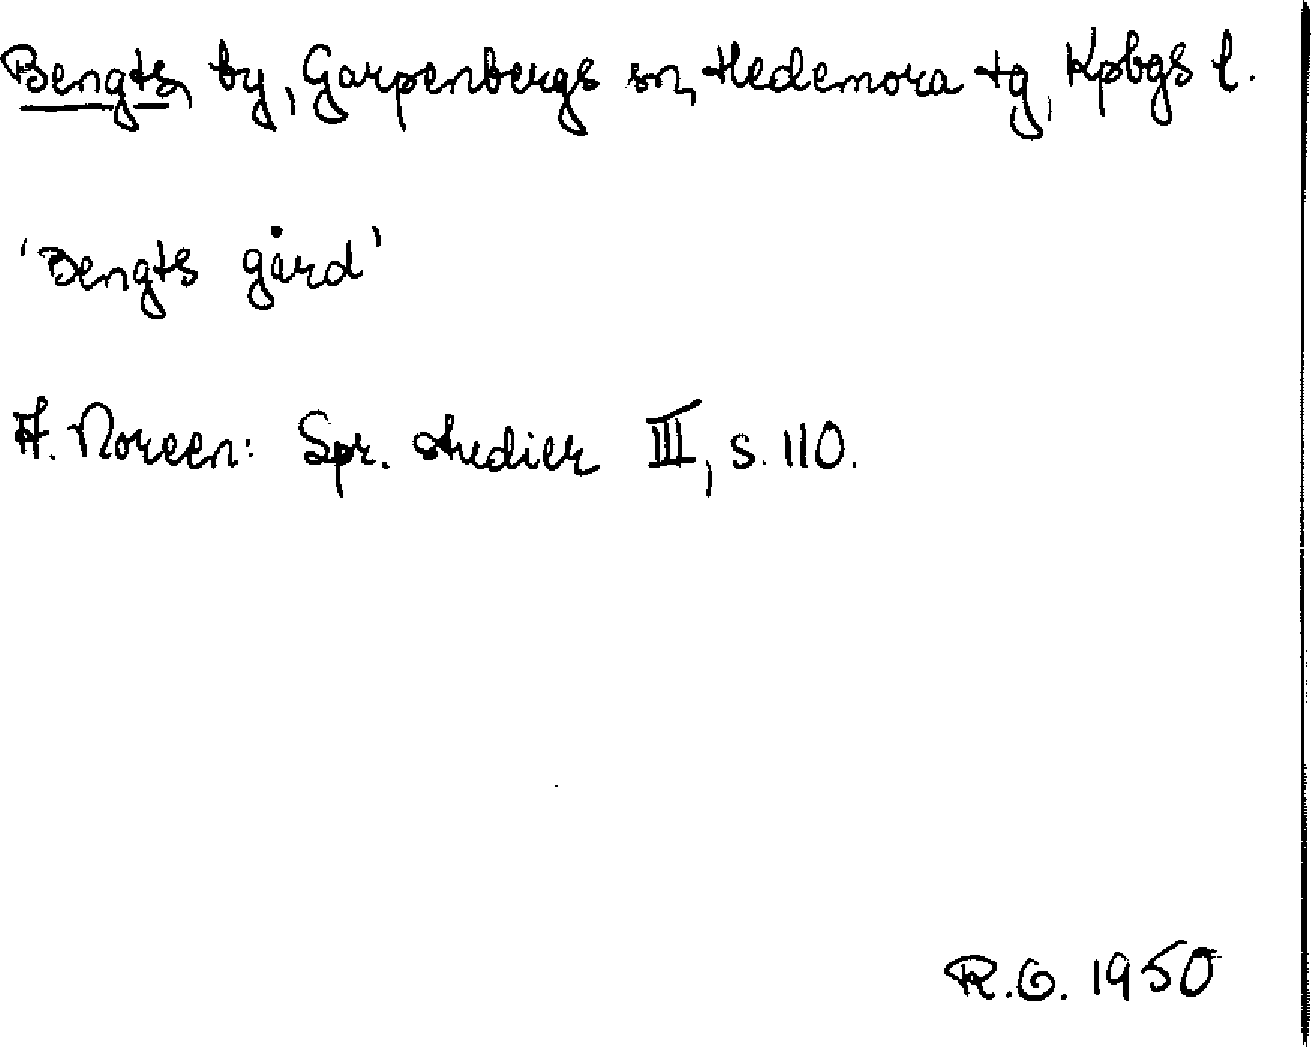 Bengts, by, Garpenbergs sn, Hedemora tg, Kpbgs l.
'Bengts gård'
A. Noreen: Spr. studier III, s. 110.
R.O. 1950